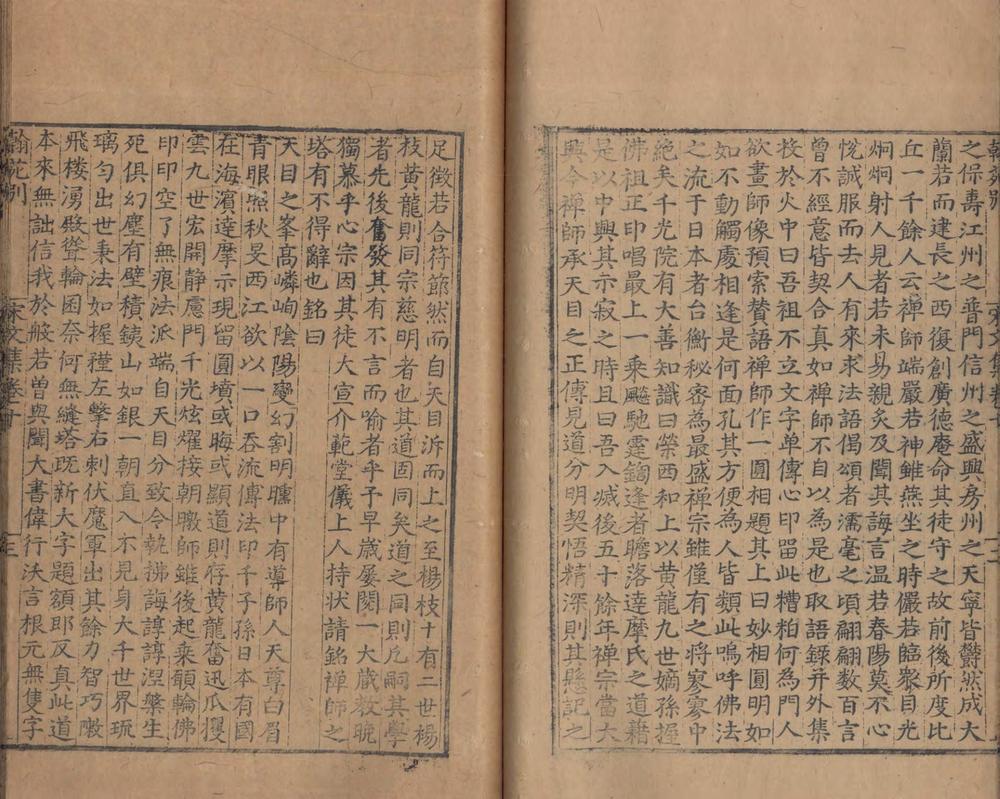 之保壽江州之普門信州之盛興房州之天寧皆欝然成大
蘭若而建長之西復創廣德庵命其徒守之故前後所度比
丘一千餘人云禅師端嚴若神雖燕坐之時儼若臨衆目光
炯炯射人見者若未易親炙及聞其誨言温若春陽莫不心
恱誠服而去人有來求法語偈頌者濡毫之頃翩翩数百言
曾不經意皆契合真如禅師不自以為是也取語録并外集
投於火中曰吾祖不立文字单傳心印留此糟粕何為門人
欲畫師像預索賛語禅師作一圓相題其上曰妙相圓明如
如不動觸處相逢是何面孔其方便為人皆類此嗚呼佛法
之流于日本者台衡秘密為最盛禅宗雖僅有之將寥寥中
絶矣千光院有大善知識曰榮西和上以黄龍九世嫡孫握
佛祖正印唱最上一乘飈馳霆鍧逢者膽落達摩氏之道藉
是以中興其示寂之時且曰吾入㓕後五十餘年禅宗當大
興今禅師承天目之正傳見道分明契悟精深則其懸記之
足徴若合符節然而自天目泝而上之至楊枝十有二世楊
枝黄龍則同宗慈明者也其道固同矣道之同則凢嗣其學
者先後奮發其有不言而喻者乎予早歲屡閱一大藏教晩
獨慕乎心宗因其徒大宣介範堂儀上人持状請銘禅師之
塔有不得辭也銘曰
天目之峯髙嶙峋陰陽變幻割明曛中有導師人天尊白眉
青眼照秋旻西江欲以一口吞流傳法印千子孫日本有國
在海濵達摩示現留圓墳或晦或顯道則存黄龍奮迅爪攫
雲九世宏開静慮門千光炫燿接朝暾師雖後起乘願輪佛
印印空了無痕法派端自天目分致令執拂誨諄諄涅槃生
死俱幻塵有壁積鐵山如銀一朝直入不見身大千世界琉
璃匀出世秉法如握瑾左擊右刺伏魔軍出其餘力智巧敷
飛楼湧殿聳輪囷奈何無縫塔既新大字題額耶反真此道
本來無詘信我於般若曽與聞大書偉行沃言根元無隻字